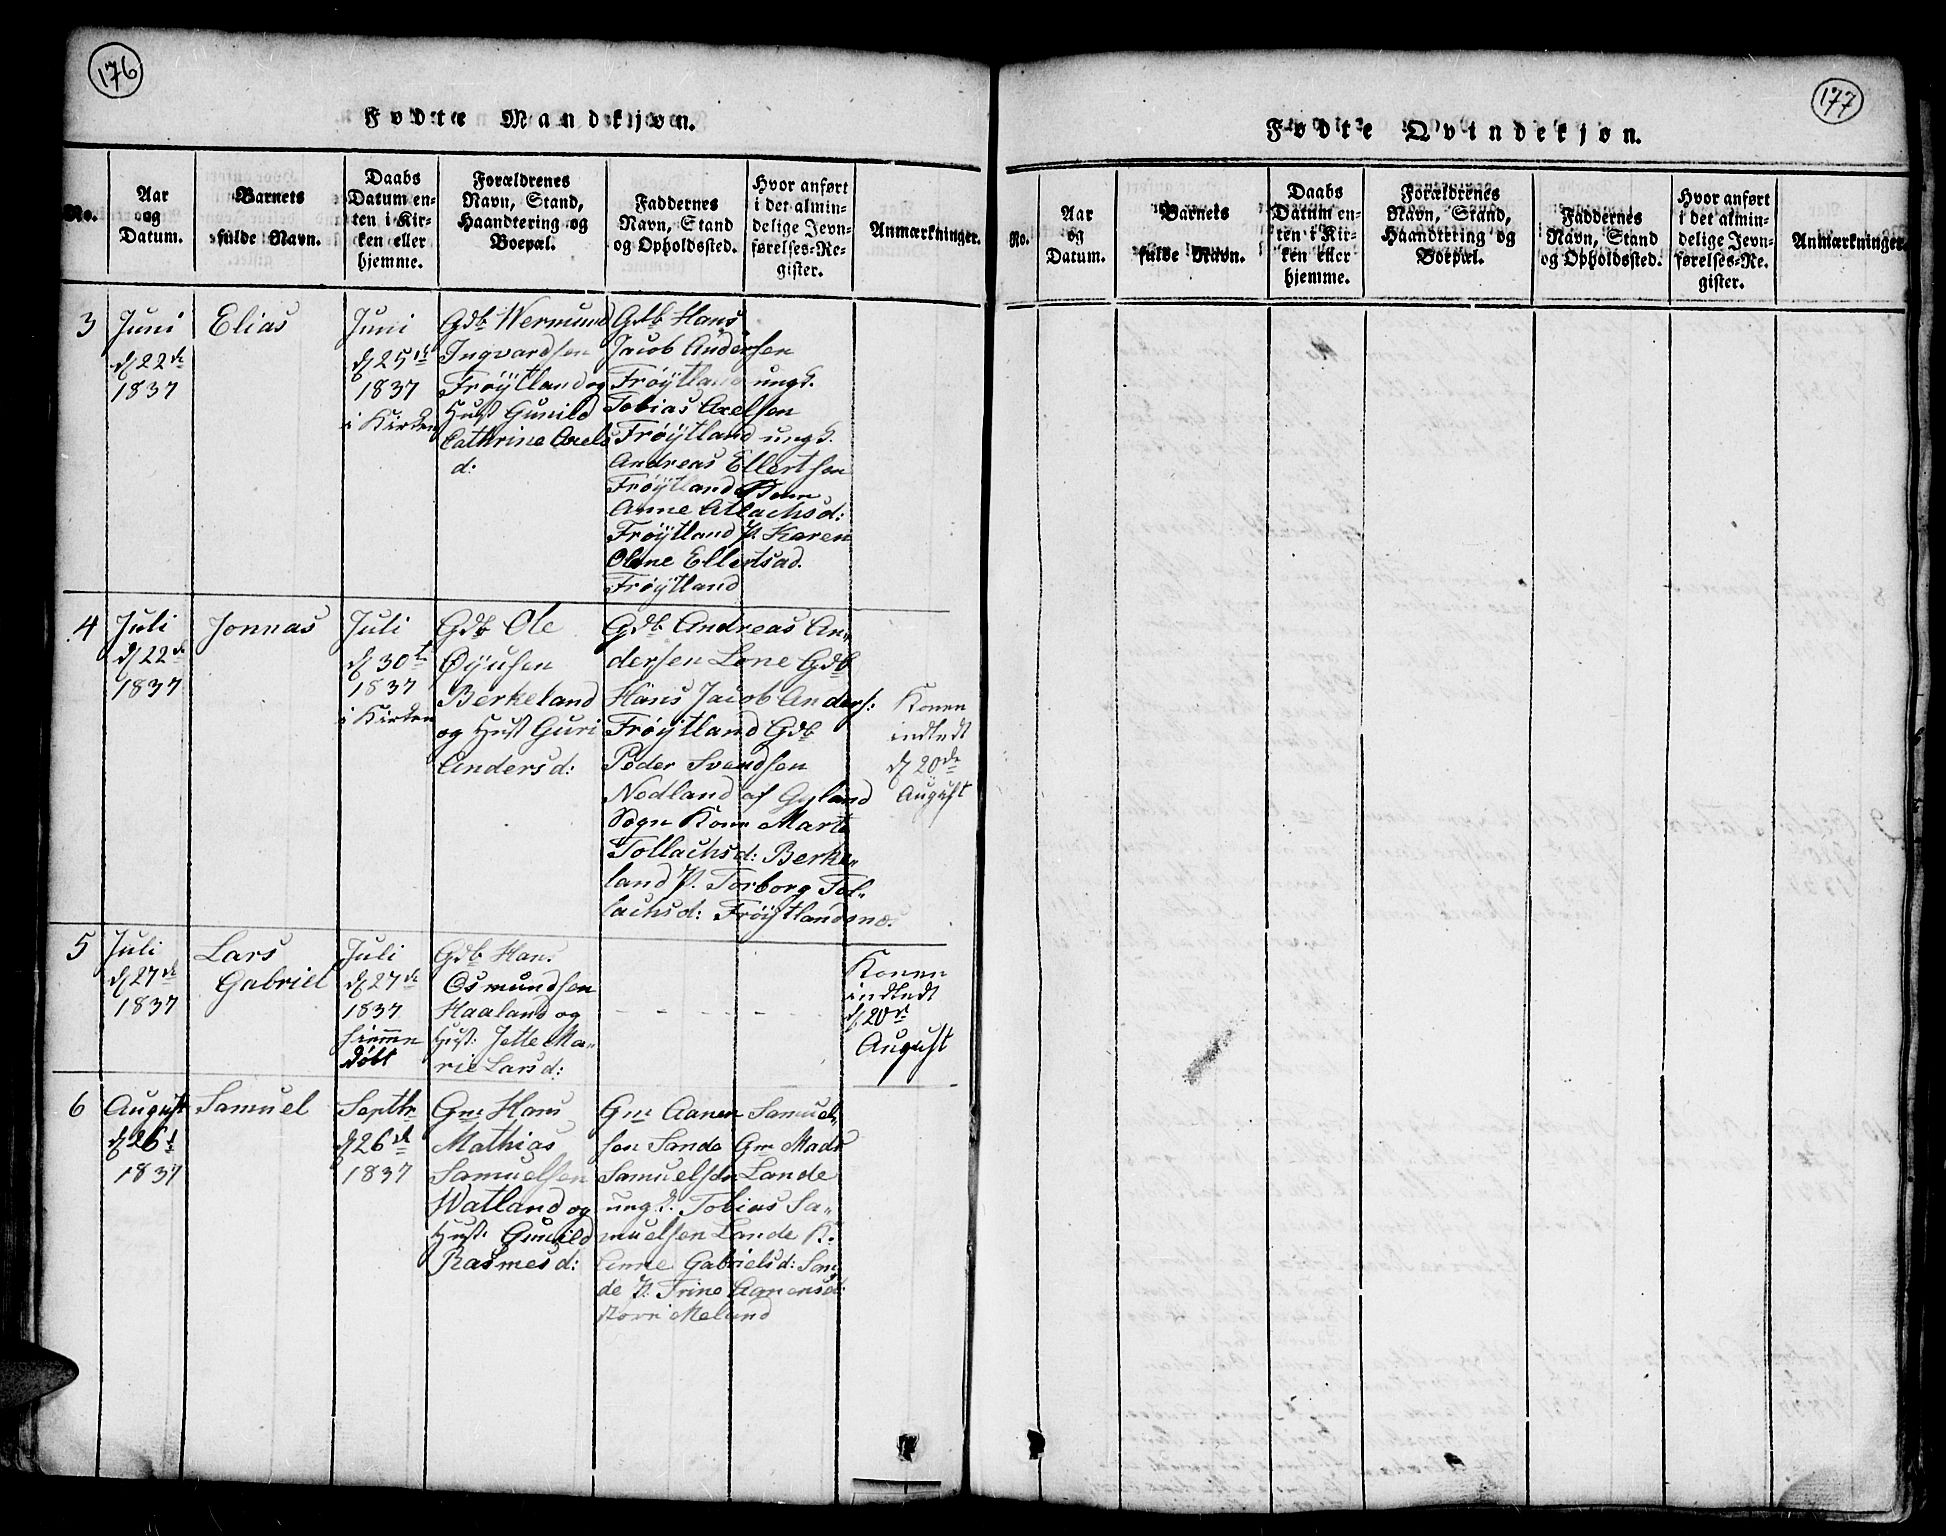 176
Fødte Mandkjøn.
No.
Aar
og
Datum.
Barnets
fulde Navn.
Daabs
Datum en-
ten i Kir-
ken eller
hjemme.
Forældrenes
Navn, Stand,
Haandtering og
Boepæl.
Faddernes
Navn, Stand
og Opholdssted.
Hvor anført
i det almin-
delige Jevn-
førelses-Re-
gister.
Anmærkninger.
3
Juni
d 22de
1837
Elias
Juni
d 25de
1837
i Kirken
Gdb Wermund
Ingvardsen
Frøÿtland og
Hust Gunild
Cathrine Axels
d:
Gdb Hans
Jacob Andersen
Frøÿtland ungk.
Tobias Axelsen
Frøÿtland ungk.
Andreas Ellertsen
Frøÿtland Kone
Anne Atlachsd:
Frøÿtland P. Karen
Oline Ellertsad.
Frøÿtland
4
Juli
d 22de
1837
Jonnas
Juli
d 30te
1837
i Kirken
Gdb Ole
Øÿusen
Berkeland
og Hust Guri
Andersd:
Gdb Andreas An-
dersen Lone Gdb
Hans Jacob Anders:
Frøÿtland Gdb
Peder Svendsen
Nedland af Gyland
Sogn Kone Marte
Tollachsd: Berke-
land P. Torborg Tol-
lachsd: Frøÿtlandsnæs
Konen
indledt
d 20de
August
5
Juli
d 27de
1837
Lars
Gabriel
Juli
d 27de
1837
hiemme
døbt
Gdb Hans
Osmundsen
Haaland og
Hust: Jette Ma-
rie Larsd:
- - - - - -
Konen
indledt
d 20de
August
6
August
d 26d
1837
Samuel
Septbr
d 26de
1837
Gm Hans
Mathias
Samuelsen
Watland og
Hust. Gunild
Rasmesd:
Gm Aanen Samuel-
sen Sande Gm Mads
Samuelsen Lande
ungk. Tobias Sa-
muelsen Lande K.
Anne Gabrielsd: San
de P. Trine Aanensd:
store Meland
177
Fødte Qvindekjøn.
No.
Aar
og
Datum.
Barnets
fulde Navn.
Daabs
Datum en-
ten i Kir-
ken eller
hjemme.
Forældrenes
Navn, Stand,
Haandtering og
Boepæl.
Faddernes
Navn, Stand
og Opholdssted.
Hvor anført
i det almin-
delige Jevn-
førelses-Re-
gister.
Anmærkninger.